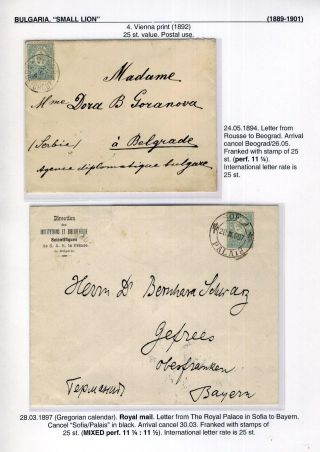 BULGARIA. "SMALL LION"
(1889-1901)
4. Vienna print (1892)
25 st. value. Postal use.
Madame
Mme Dora B Goranova
(Serbie) à Belgrade
Agence diplomatique bulgare
24.05.1894. Letter from
Rousse to Beograd. Arrival
cancel Beograd/26.05.
Franked with stamp of 25
st. (perf. 11 ¼).
International letter rate is
25 st.
Direction
des
INSTITUTIONS ET BIBLIOTHÈQUE
Scientifiques
de S. A. R. le Prince
de Bulgarie
PALAIS
Herrn Dr Bernhard Schwarz
Gefrees
Oberfranken
Германия
Bayern
28.03.1897 (Gregorian calendar). Royal mail. Letter from The Royal Palace in Sofia to Bayern.
Cancel "Sofia/Palais" in black. Arrival cancel 30.03. Franked with stamps of
25 st. (MIXED perf. 11 ¼ : 11 ½). International letter rate is 25 st.